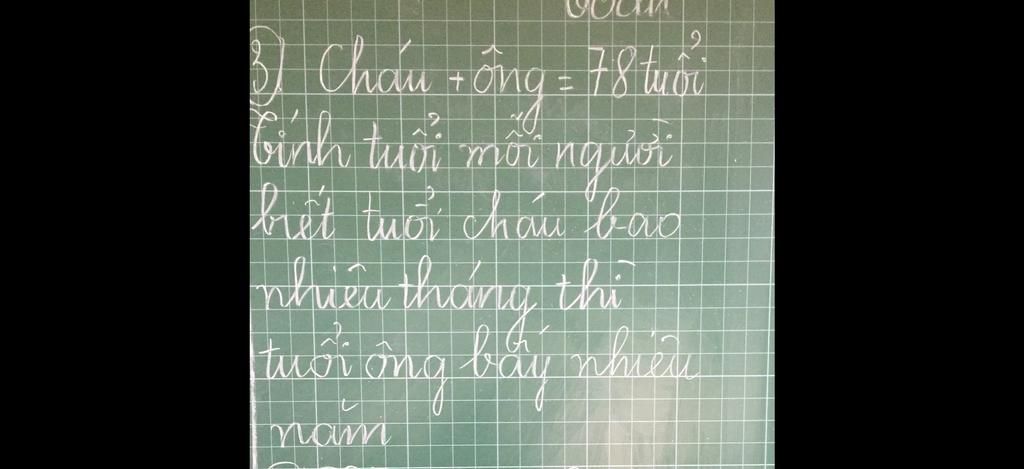 3) Cháu + ông = 78 tuổi
Tính tuổi mỗi người
biết tuổi cháu bao
nhiêu tháng thì
tuổi ông bấy nhiêu
năm